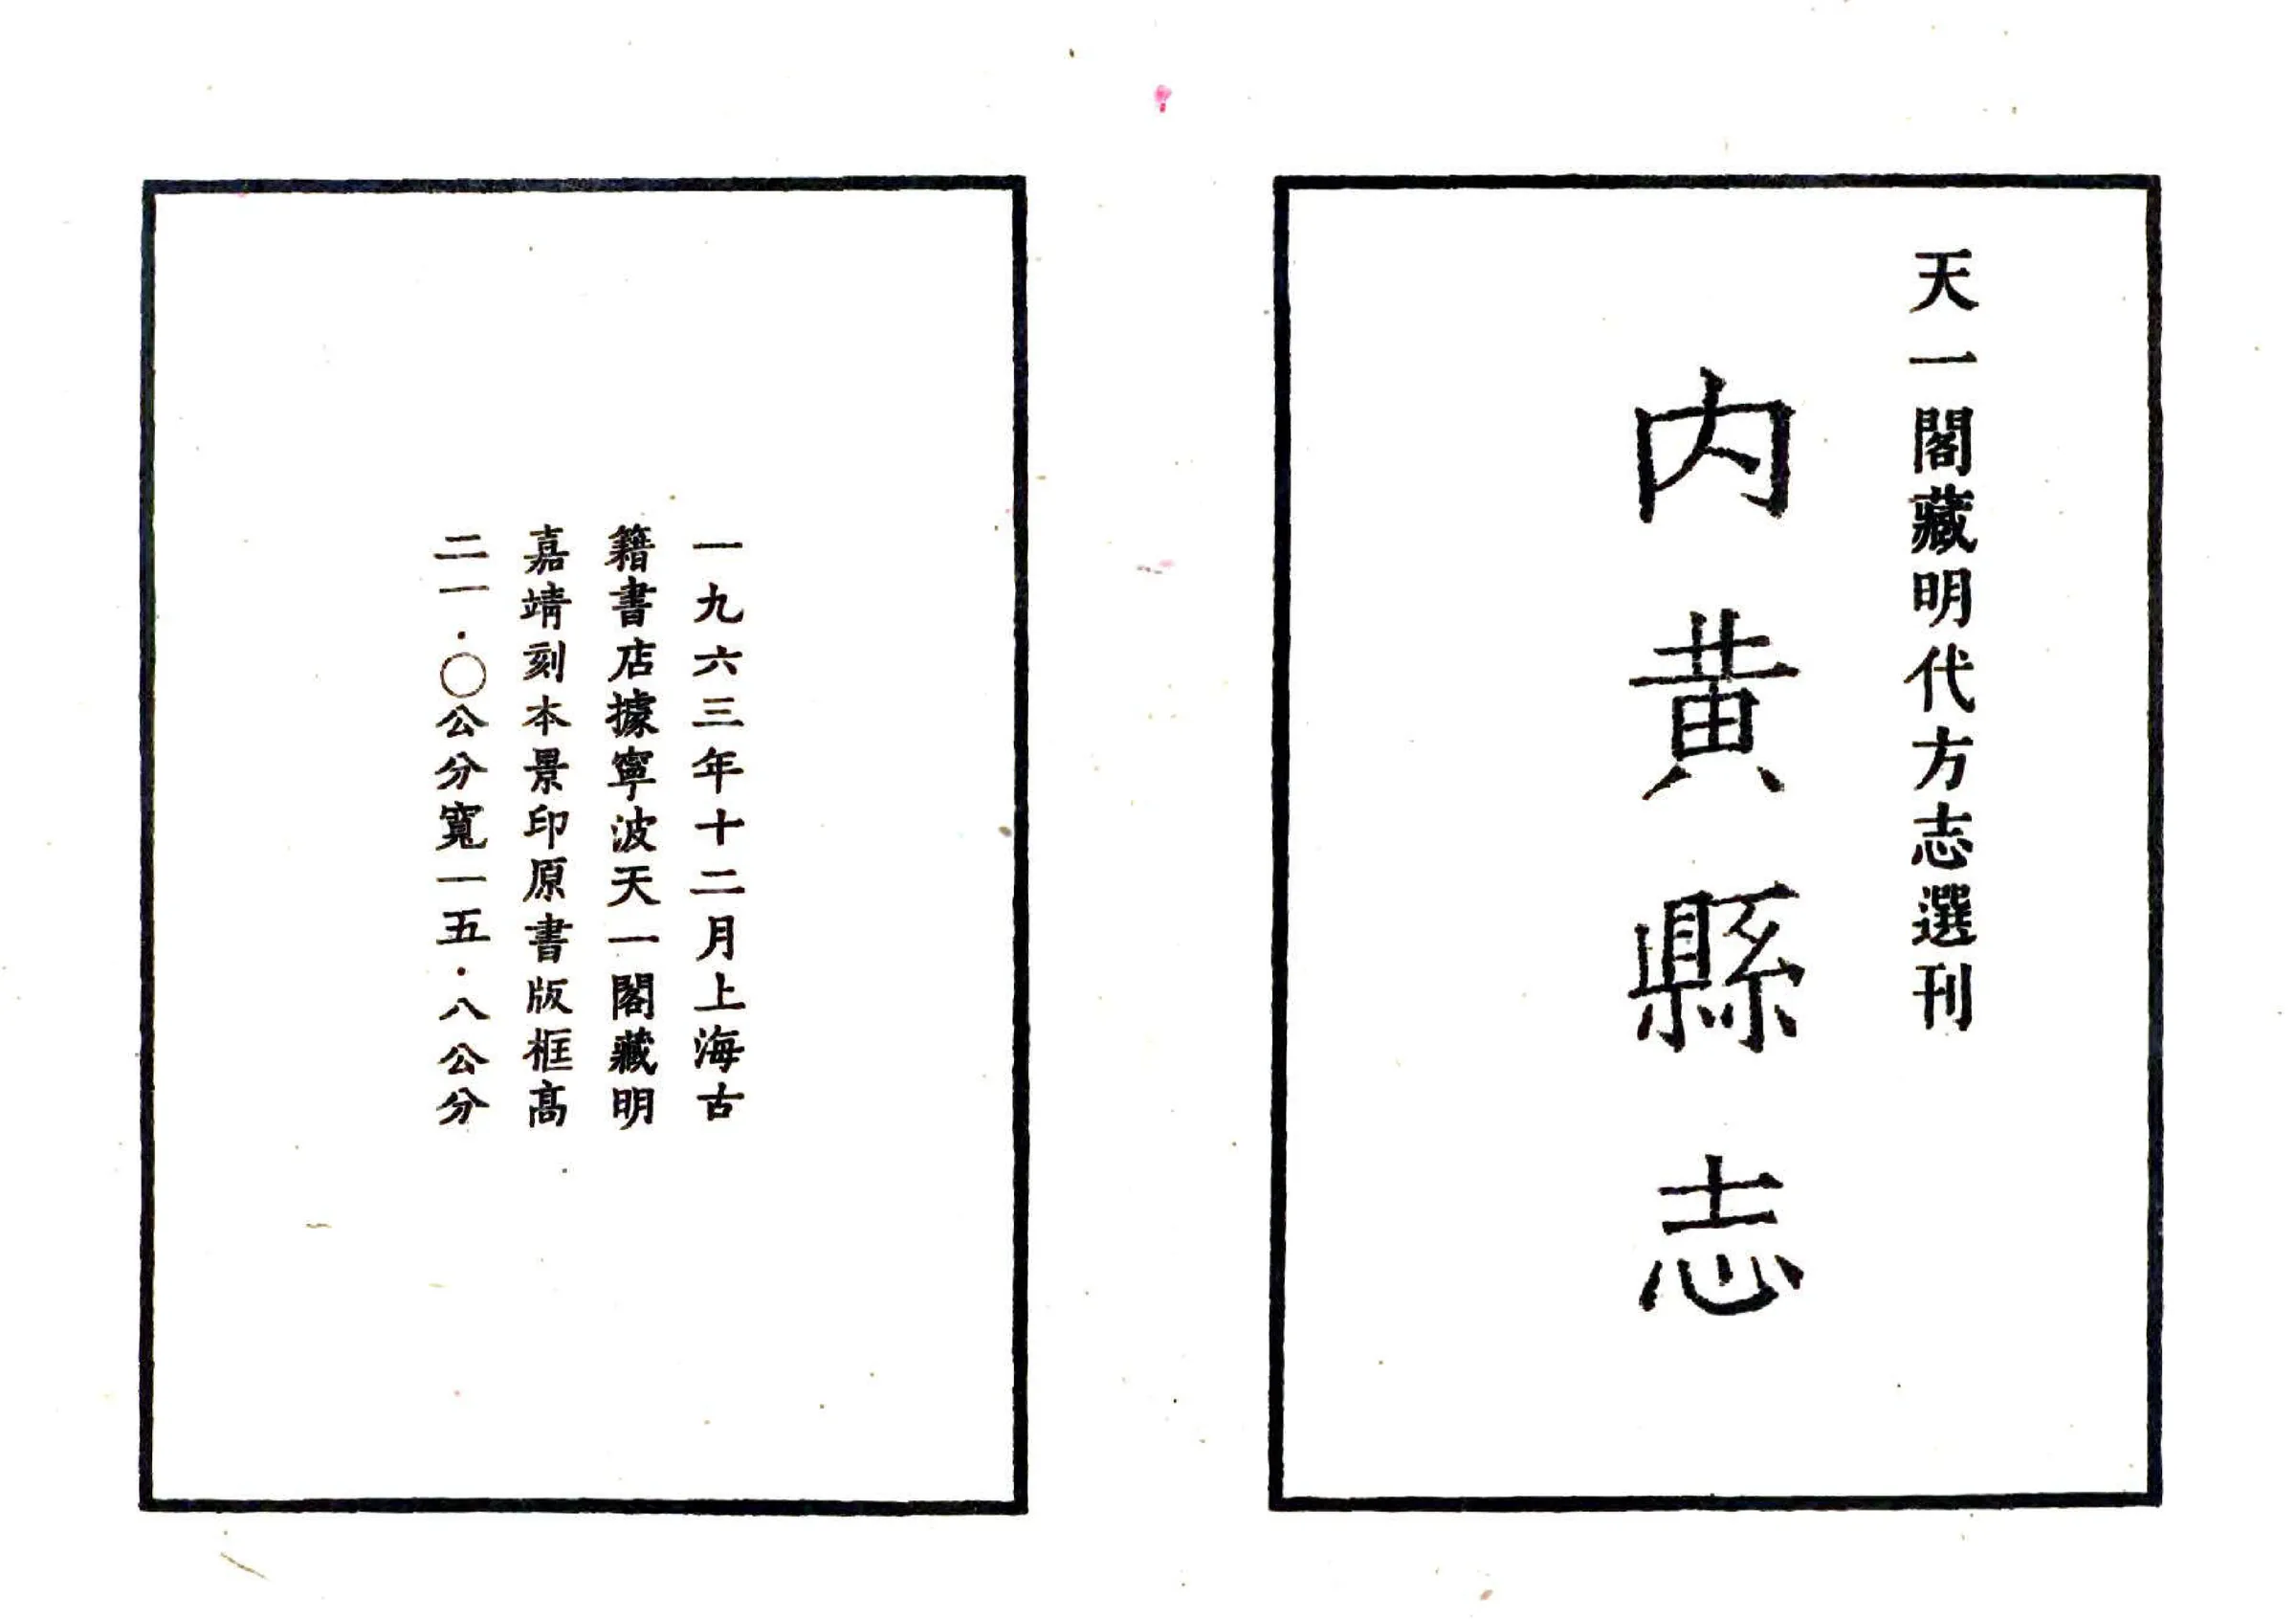 天一閣藏明代方志選刊
内黃縣志
一九六三年十二月上海古
籍書店據寧波天一閣藏明
嘉靖刻本景印原書版框高
二一·〇公分寬一五·八公分